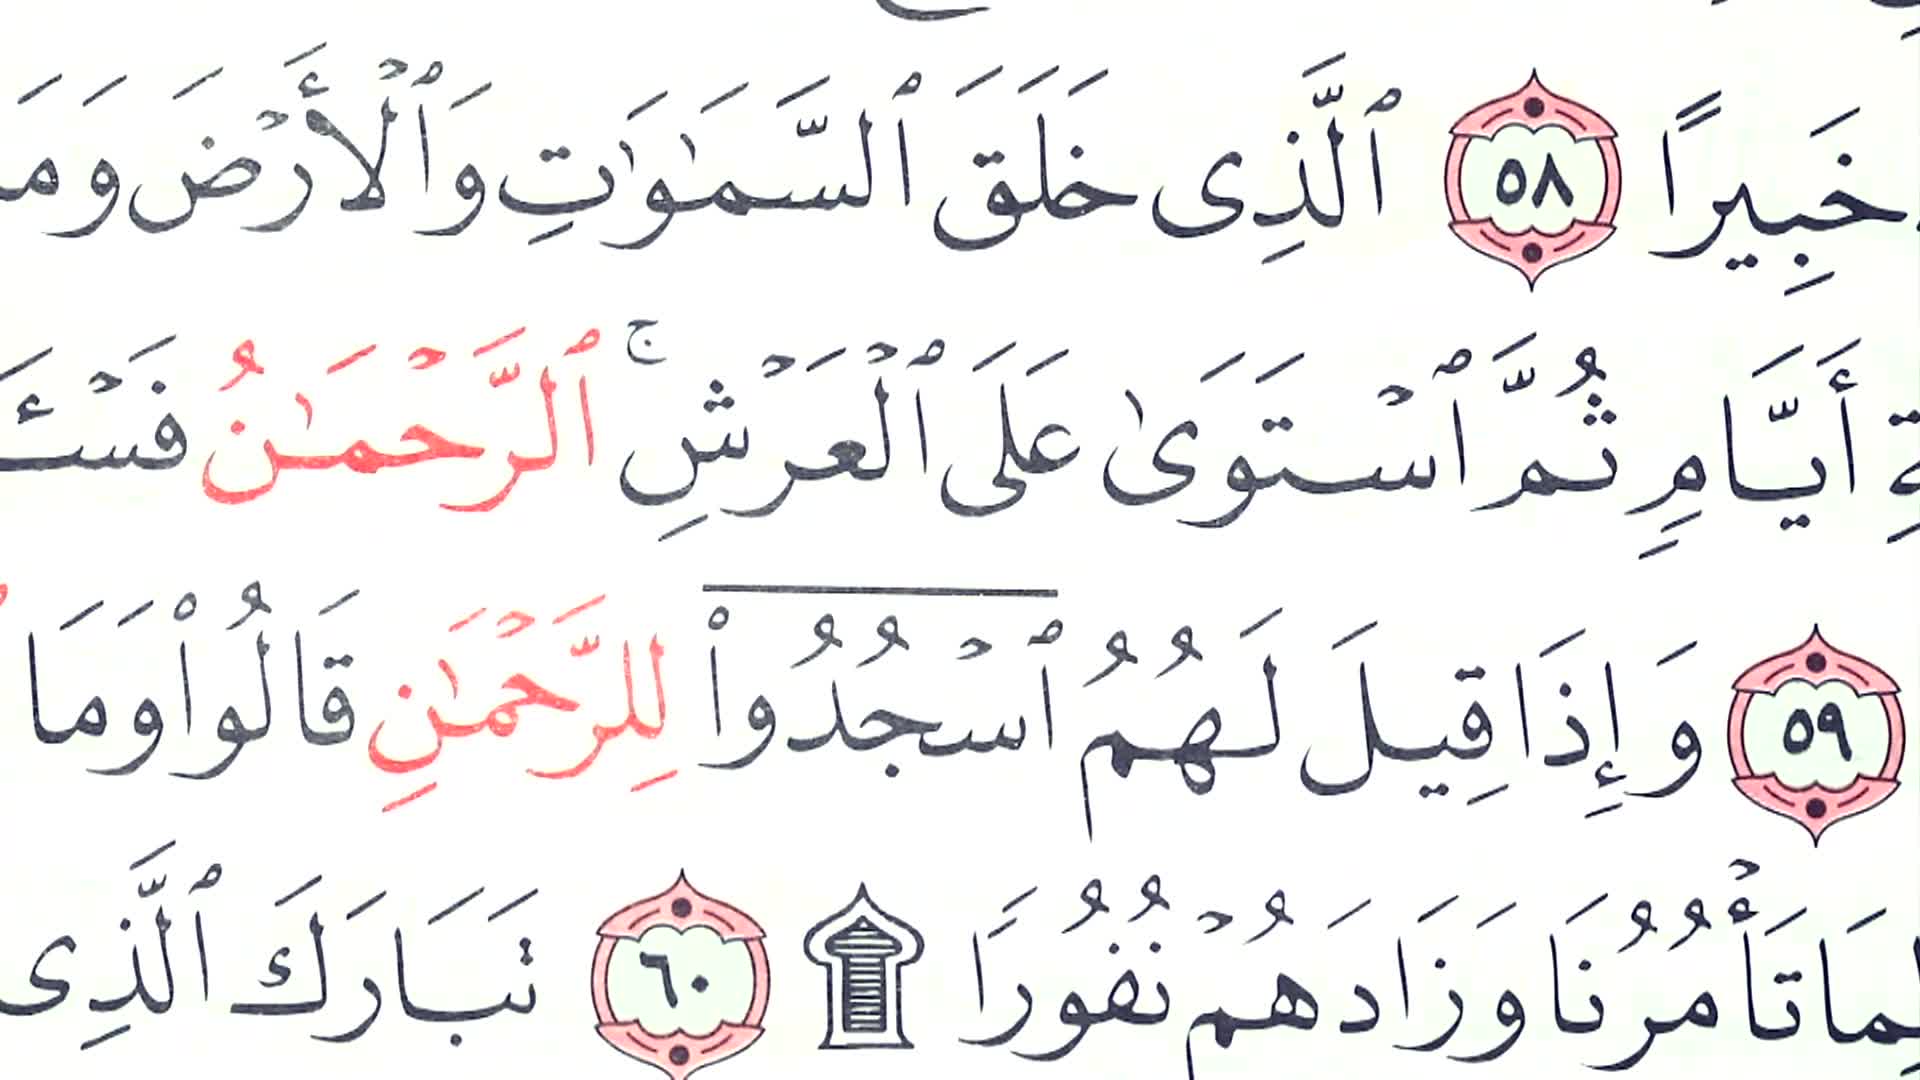 خَبِيرًا ٥٨ ٱلَّذِى خَلَقَ ٱلسَّمَٰوَٰتِ وَٱلْأَرْضَ وَمَا
أَيَّامٍ ثُمَّ ٱسْتَوَىٰ عَلَى ٱلْعَرْشِ ۚ ٱلرَّحْمَٰنُ
٥٩ وَإِذَا قِيلَ لَهُمُ ٱسْجُدُوا۟ لِلرَّحْمَٰنِ قَالُوا۟ وَمَا
لِمَا تَأْمُرُنَا وَزَادَهُمْ نُفُورًا ۩ ٦٠ تَبَارَكَ ٱلَّذِى